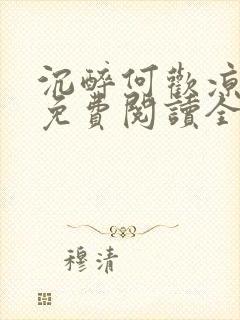 沉醉何歡涼
免費閱讀全
穆清